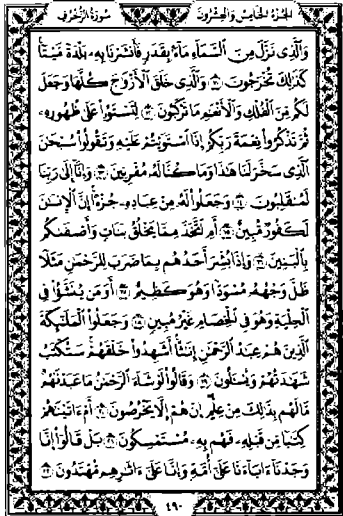 الجزء الخامس والعشرون سورة الزخرف
وَالَّذِى نَزَّلَ مِنَ السَّمَآءِ مَآءً بِقَدَرٍ فَأَنشَرْنَا بِهِۦ بَلْدَةً مَّيْتًا
كَذَٰلِكَ تُخْرَجُونَ ١١ وَالَّذِى خَلَقَ الْأَزْوَٰجَ كُلَّهَا وَجَعَلَ
لَكُم مِّنَ الْفُلْكِ وَالْأَنْعَٰمِ مَا تَرْكَبُونَ ١٢ لِتَسْتَوُۥا۟ عَلَىٰ ظُهُورِهِۦ
ثُمَّ تَذْكُرُوا۟ نِعْمَةَ رَبِّكُمْ إِذَا اسْتَوَيْتُمْ عَلَيْهِ وَتَقُولُوا۟ سُبْحَٰنَ
الَّذِى سَخَّرَ لَنَا هَٰذَا وَمَا كُنَّا لَهُۥ مُقْرِنِينَ ١٣ وَإِنَّآ إِلَىٰ رَبِّنَا
لَمُنقَلِبُونَ ١٤ وَجَعَلُوا۟ لَهُۥ مِنْ عِبَادِهِۦ جُزْءًا إِنَّ الْإِنسَٰنَ
لَكَفُورٌ مُّبِينٌ ١٥ أَمِ اتَّخَذَ مِمَّا يَخْلُقُ بَنَاتٍ وَأَصْفَىٰكُم
بِالْبَنِينَ ١٦ وَإِذَا بُشِّرَ أَحَدُهُم بِمَا ضَرَبَ لِلرَّحْمَٰنِ مَثَلًا
ظَلَّ وَجْهُهُۥ مُسْوَدًّا وَهُوَ كَظِيمٌ ١٧ أَوَمَن يُنَشَّؤُا۟ فِى
الْحِلْيَةِ وَهُوَ فِى الْخِصَامِ غَيْرُ مُبِينٍ ١٨ وَجَعَلُوا۟ الْمَلَٰٓئِكَةَ
الَّذِينَ هُمْ عِبَٰدُ الرَّحْمَٰنِ إِنَٰثًا أَشَهِدُوا۟ خَلْقَهُمْ سَتُكْتَبُ
شَهَٰدَتُهُمْ وَيُسْـَٔلُونَ ١٩ وَقَالُوا۟ لَوْ شَآءَ الرَّحْمَٰنُ مَا عَبَدْنَٰهُم
مَّا لَهُم بِذَٰلِكَ مِنْ عِلْمٍ إِنْ هُمْ إِلَّا يَخْرُصُونَ ٢٠ أَمْ ءَاتَيْنَٰهُمْ
كِتَٰبًا مِّن قَبْلِهِۦ فَهُم بِهِۦ مُسْتَمْسِكُونَ ٢١ بَلْ قَالُوٓا۟ إِنَّا
وَجَدْنَآ ءَابَآءَنَا عَلَىٰٓ أُمَّةٍ وَإِنَّا عَلَىٰٓ ءَاثَٰرِهِم مُّهْتَدُونَ ٢٢
٤٩٠